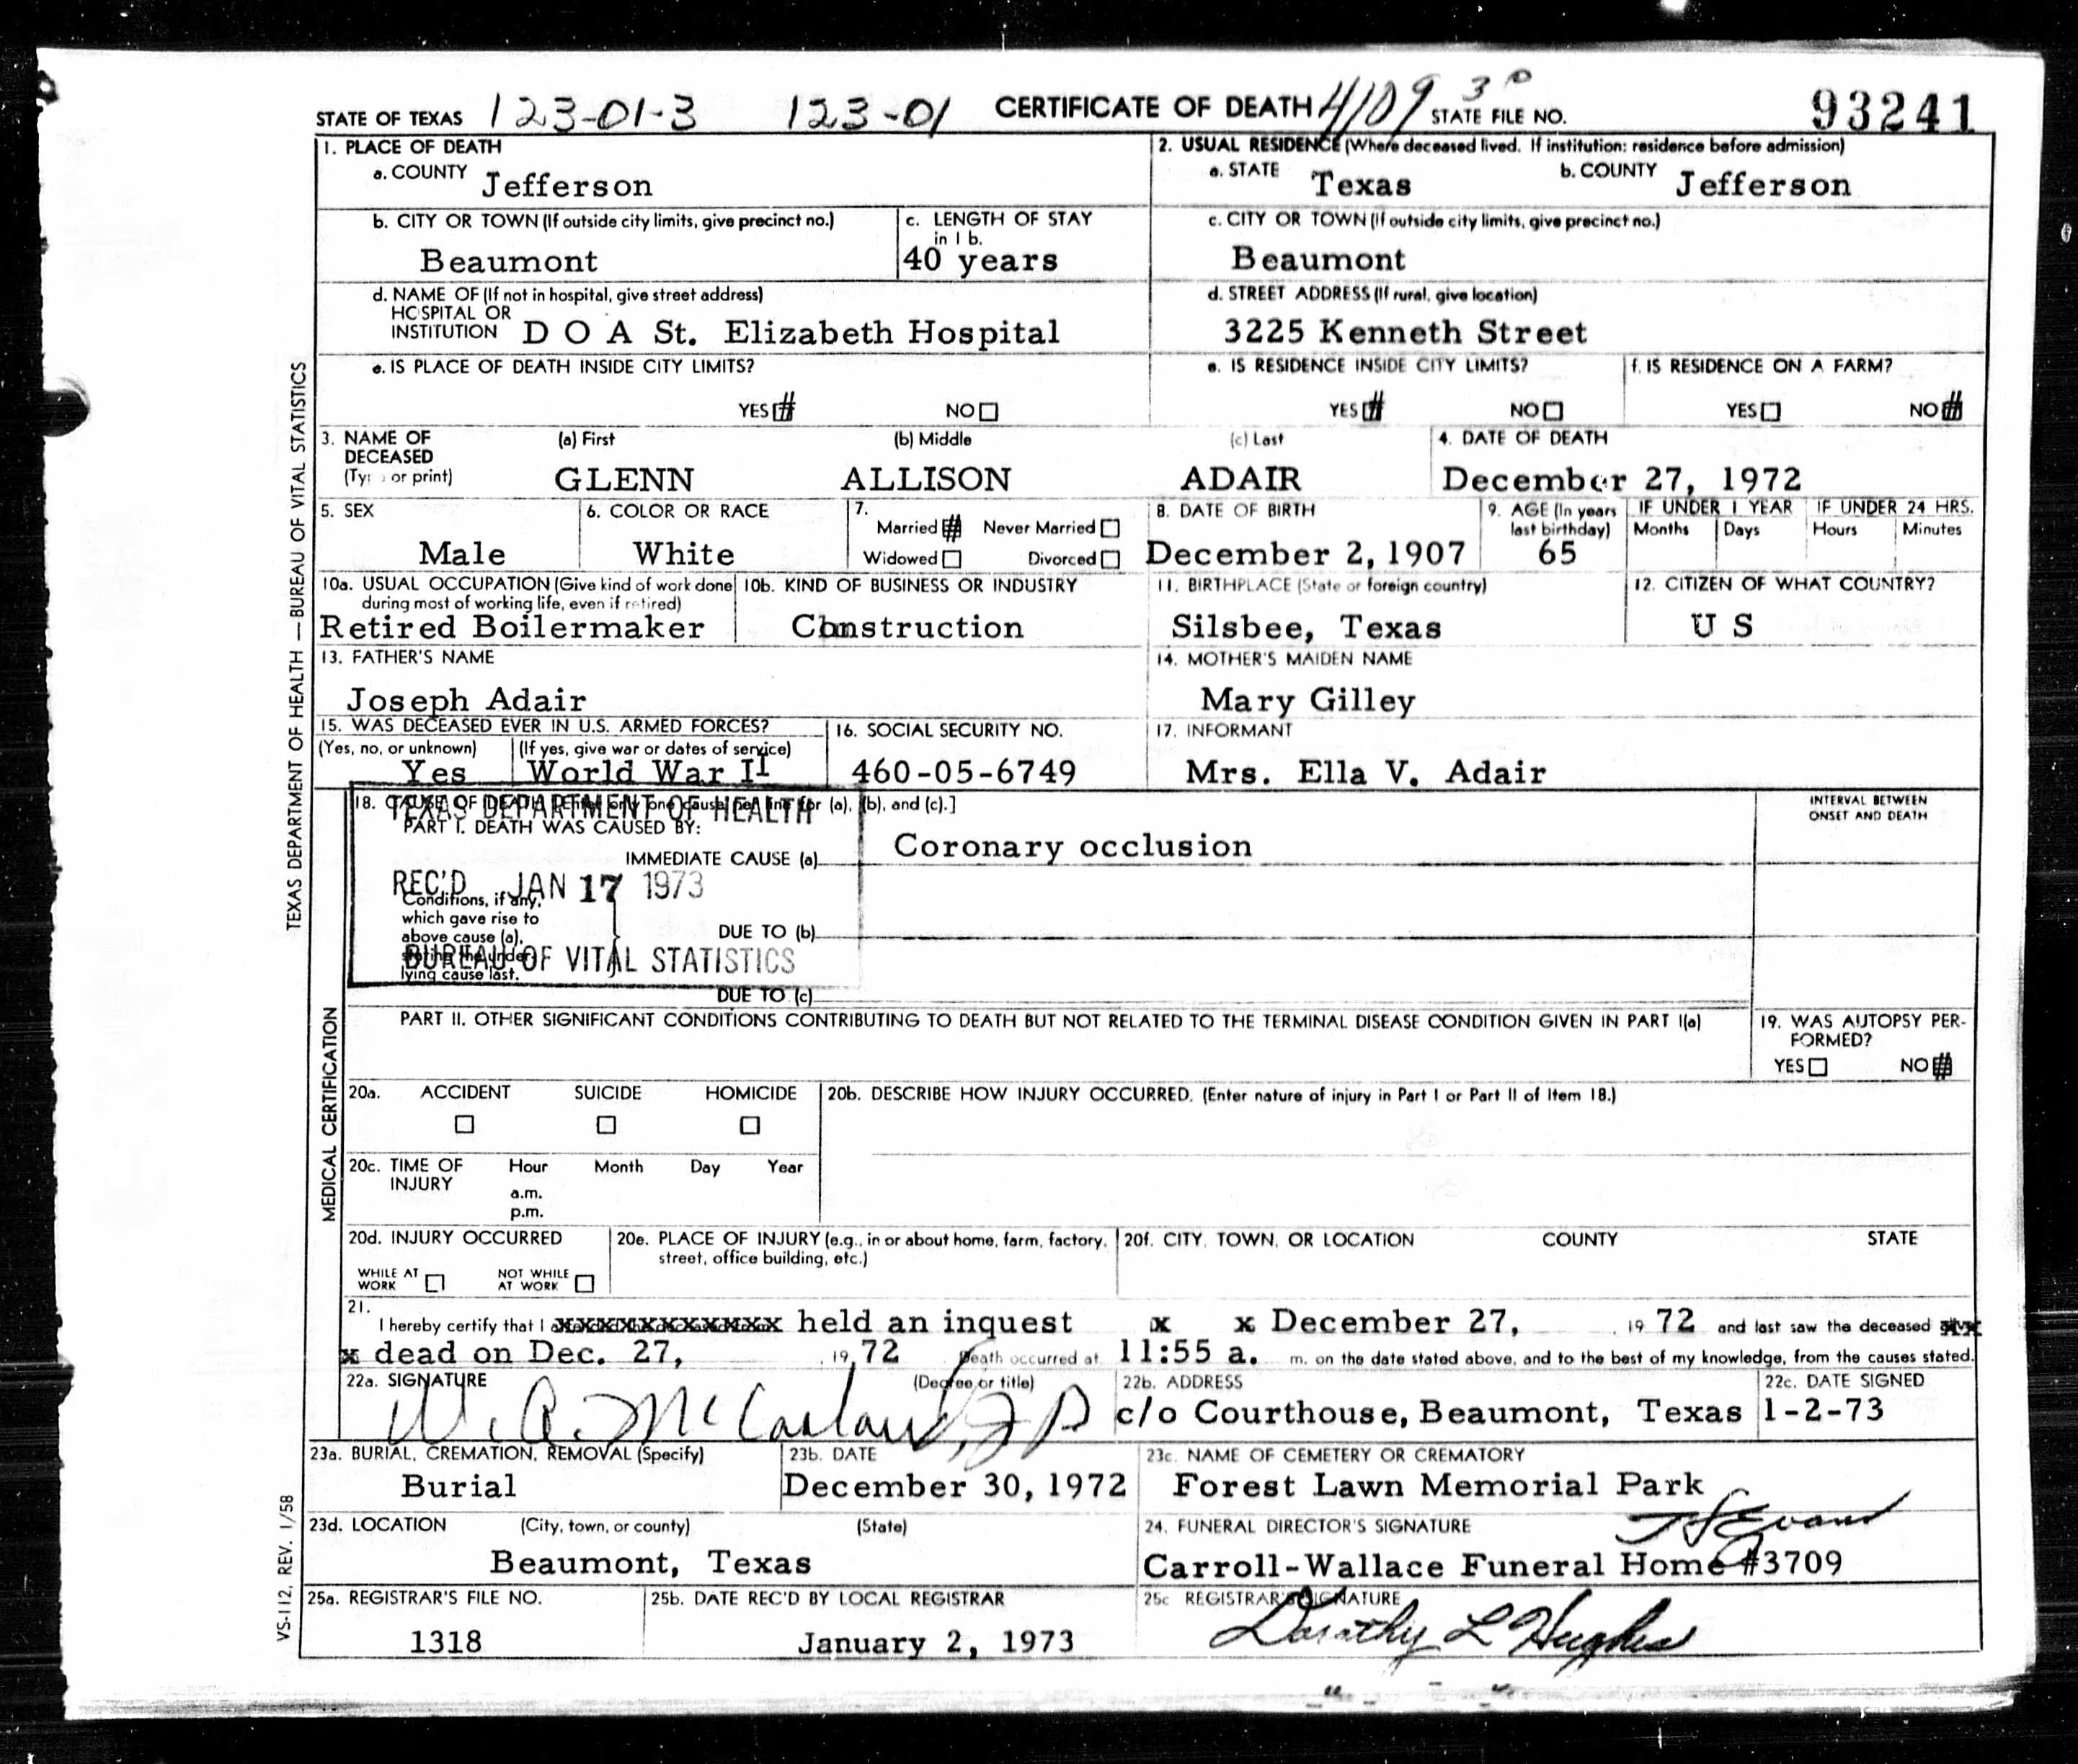 STATE OF TEXAS 123-01-3 123-01 CERTIFICATE OF DEATH 4109 3 STATE FILE NO. 93241
1. PLACE OF DEATH
a. COUNTY Jefferson
2. USUAL RESIDENCE (Where deceased lived. If institution: residence before admission)
a. STATE Texas b. COUNTY Jefferson
b. CITY OR TOWN (If outside city limits, give precinct no.)
Beaumont
c. LENGTH OF STAY
in 1 b.
40 years
c. CITY OR TOWN (If outside city limits, give precinct no.)
Beaumont
d. NAME OF (If not in hospital, give street address)
HOSPITAL OR
INSTITUTION D O A St. Elizabeth Hospital
d. STREET ADDRESS (If rural, give location)
3225 Kenneth Street
e. IS PLACE OF DEATH INSIDE CITY LIMITS?
YES # NO
e. IS RESIDENCE INSIDE CITY LIMITS?
YES # NO
f. IS RESIDENCE ON A FARM?
YES NO #
3. NAME OF
DECEASED
(Type or print)
(a) First
GLENN
(b) Middle
ALLISON
(c) Last
ADAIR
4. DATE OF DEATH
December 27, 1972
5. SEX
Male
6. COLOR OR RACE
White
7.
Married # Never Married
Widowed Divorced
8. DATE OF BIRTH
December 2, 1907
9. AGE (In years
last birthday)
65
IF UNDER 1 YEAR
Months Days
IF UNDER 24 HRS.
Hours Minutes
10a. USUAL OCCUPATION (Give kind of work done
during most of working life, even if retired)
Retired Boilermaker
10b. KIND OF BUSINESS OR INDUSTRY
Construction
11. BIRTHPLACE (State or foreign country)
Silsbee, Texas
12. CITIZEN OF WHAT COUNTRY?
U S
13. FATHER'S NAME
Joseph Adair
14. MOTHER'S MAIDEN NAME
Mary Gilley
15. WAS DECEASED EVER IN U.S. ARMED FORCES?
(Yes, no, or unknown) (If yes, give war or dates of service)
Yes World War II
16. SOCIAL SECURITY NO.
460-05-6749
17. INFORMANT
Mrs. Ella V. Adair
18. CAUSE OF DEATH [Enter only one cause per line for (a), (b), and (c).]
TEXAS DEPARTMENT OF HEALTH
PART I. DEATH WAS CAUSED BY:
IMMEDIATE CAUSE (a) Coronary occlusion
INTERVAL BETWEEN
ONSET AND DEATH
REC'D JAN 17 1973
Conditions, if any,
which gave rise to
above cause (a),
stating the under-
lying cause last.
DUE TO (b)
BUREAU OF VITAL STATISTICS
DUE TO (c)
PART II. OTHER SIGNIFICANT CONDITIONS CONTRIBUTING TO DEATH BUT NOT RELATED TO THE TERMINAL DISEASE CONDITION GIVEN IN PART I(a)
19. WAS AUTOPSY PER-
FORMED?
YES NO #
20a. ACCIDENT SUICIDE HOMICIDE
20b. DESCRIBE HOW INJURY OCCURRED. (Enter nature of injury in Part I or Part II of Item 18.)
20c. TIME OF
INJURY
Hour Month Day Year
a.m.
p.m.
20d. INJURY OCCURRED
WHILE AT
WORK
NOT WHILE
AT WORK
20e. PLACE OF INJURY (e.g., in or about home, farm, factory,
street, office building, etc.)
20f. CITY, TOWN, OR LOCATION COUNTY STATE
21.
I hereby certify that I xxxxxxxxxxxx held an inquest x x December 27, 1972 and last saw the deceased
x dead on Dec. 27, 1972 Death occurred at 11:55 a. m. on the date stated above, and to the best of my knowledge, from the causes stated.
22a. SIGNATURE (Degree or title)
W. A. McCarland, J P
22b. ADDRESS
c/o Courthouse, Beaumont, Texas
22c. DATE SIGNED
1-2-73
23a. BURIAL, CREMATION, REMOVAL (Specify)
Burial
23b. DATE
December 30, 1972
23c. NAME OF CEMETERY OR CREMATORY
Forest Lawn Memorial Park
23d. LOCATION (City, town, or county) (State)
Beaumont, Texas
24. FUNERAL DIRECTOR'S SIGNATURE
Evans
Carroll-Wallace Funeral Home #3709
25a. REGISTRAR'S FILE NO.
1318
25b. DATE REC'D BY LOCAL REGISTRAR
January 2, 1973
25c REGISTRAR'S SIGNATURE
Dorothy L Hughes
TEXAS DEPARTMENT OF HEALTH — BUREAU OF VITAL STATISTICS
MEDICAL CERTIFICATION
VS-112, REV. 1/58